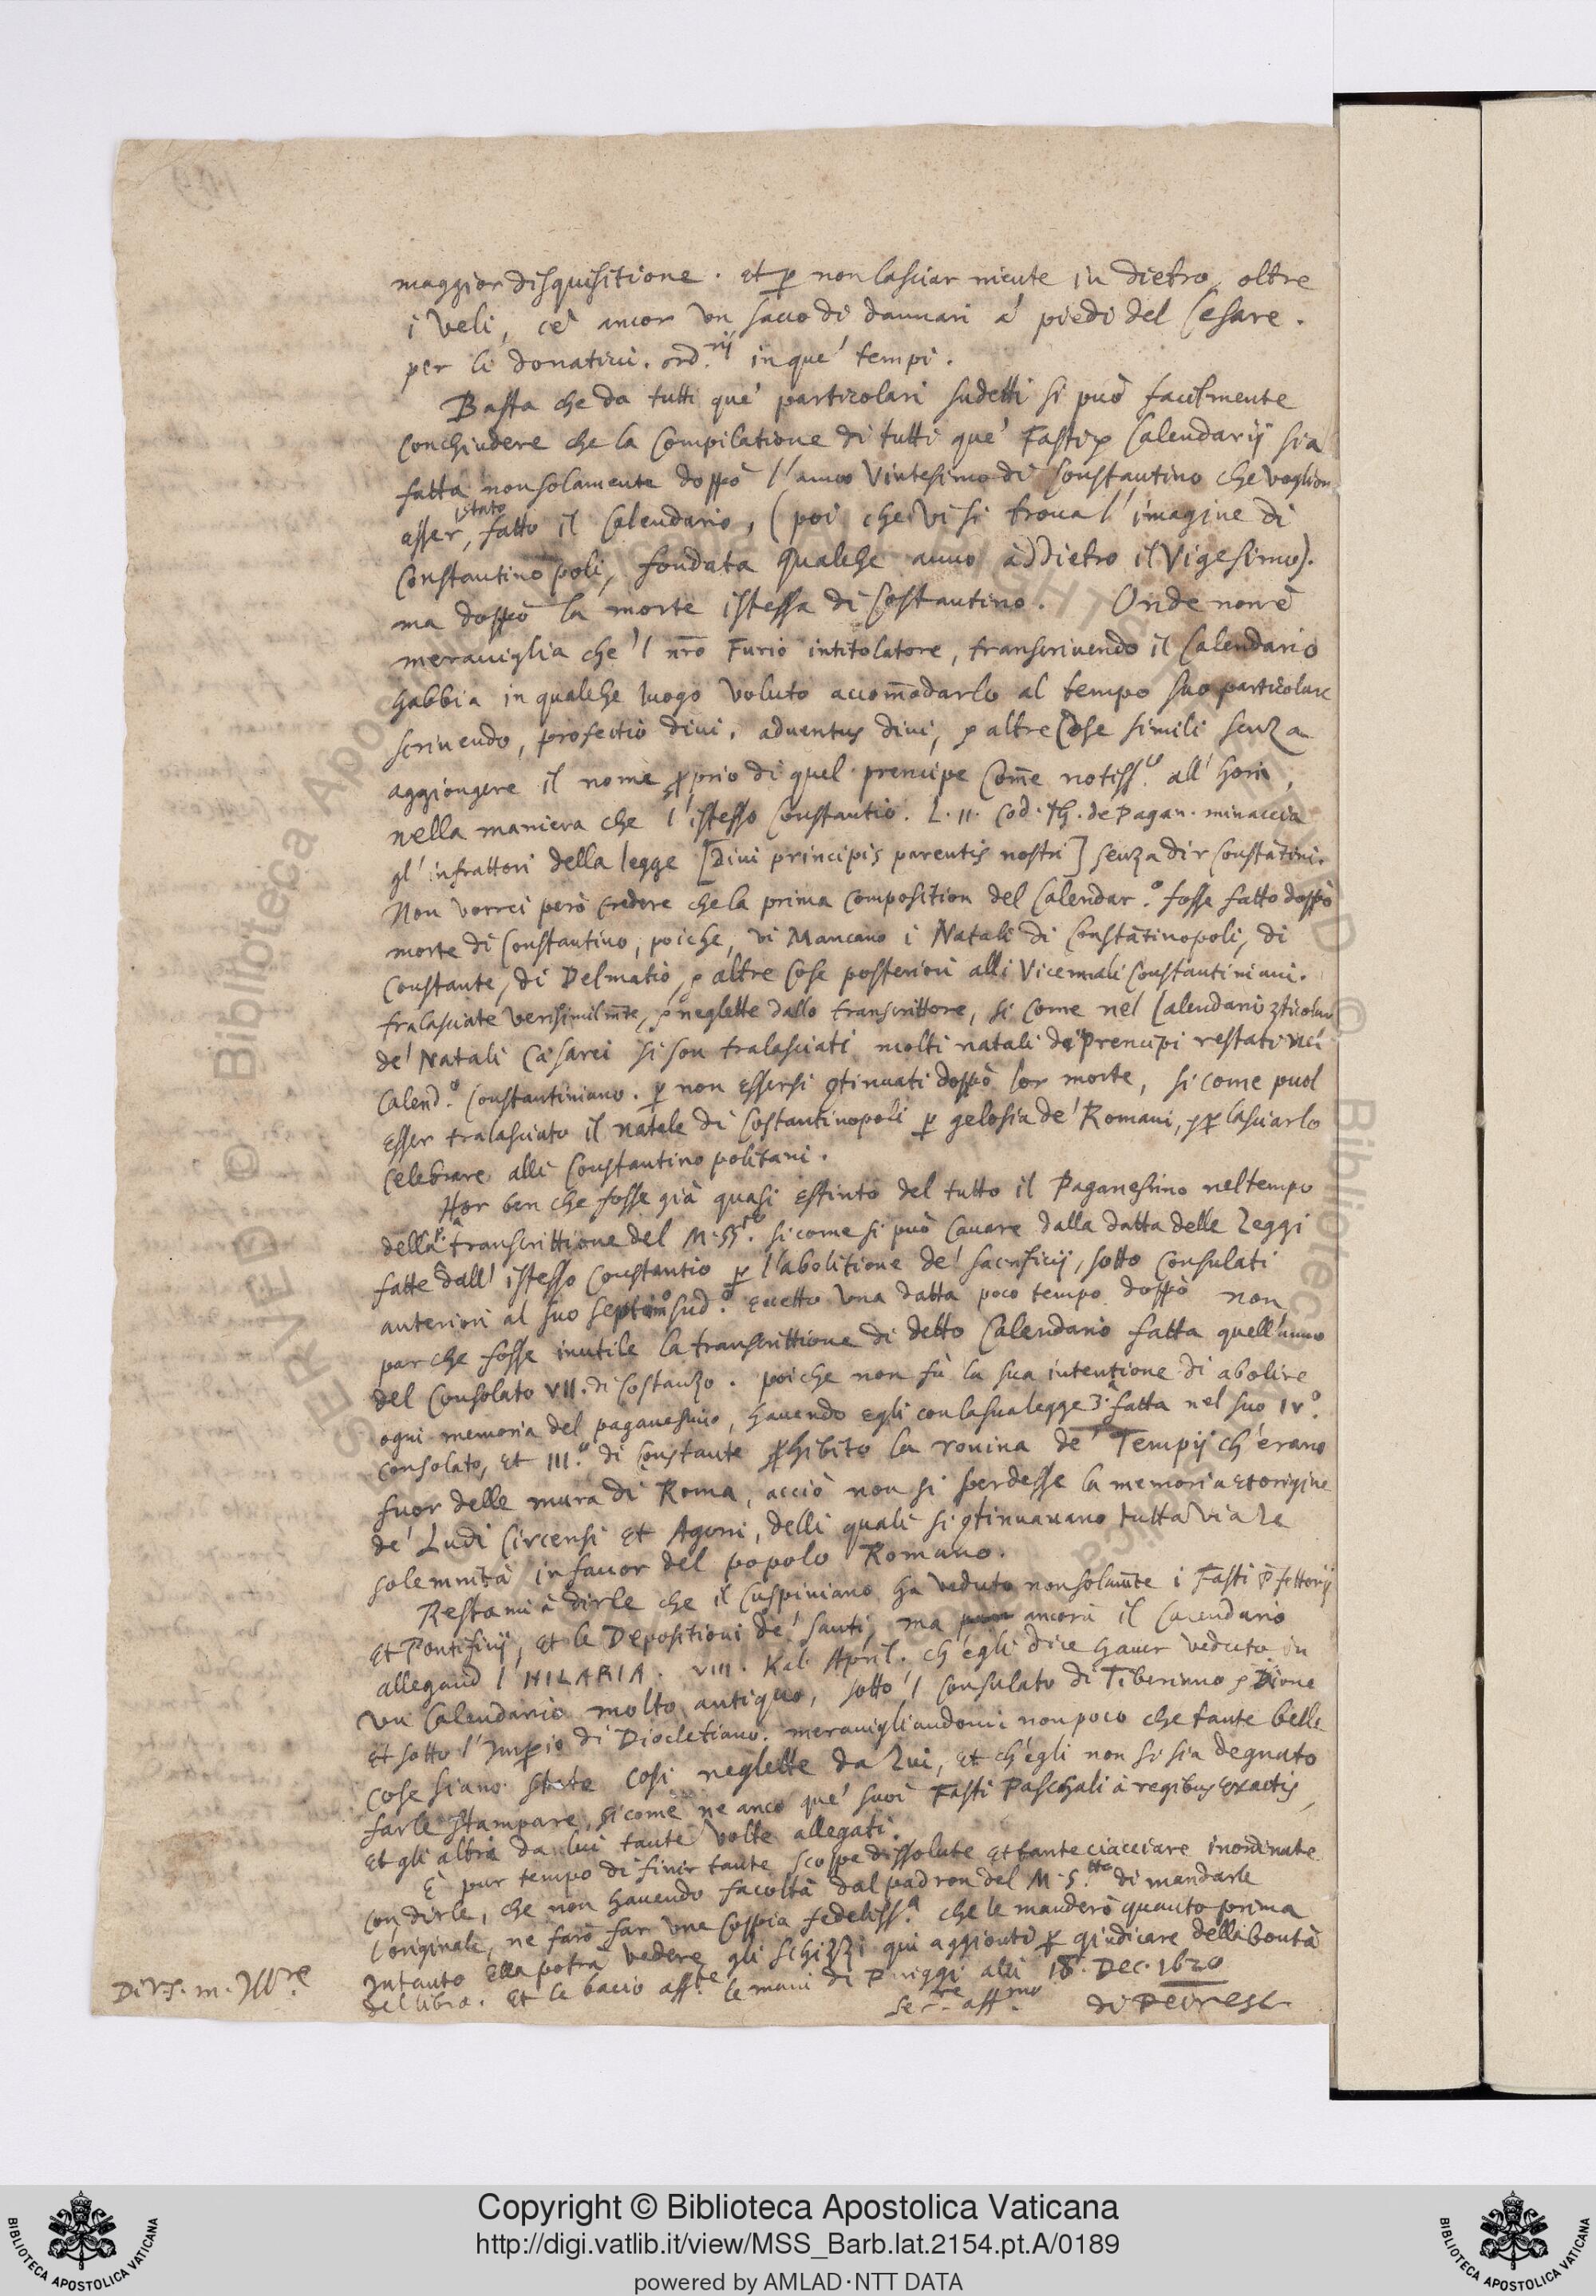 maggior disquisitione. Et per non lasciar niente in dietro, oltre
i veli, ce ancor un sacco di dannari a' piedi del Cesare.
per li donativi. ord.rij in que' tempi.
Basta che da tutti que' particolari sudetti si può facilmente
Conchiudere che la Compilatione di tutti que' Fasti e Calendarij sia
fatta non solamente doppò l'anno Vintesimo di Constantino che voglion
esser stato fatto il Calendario, (poi che vi si trova l'imagine di
Constantinopoli, fondata qualche anno addietro il Vigesimo).
ma doppò la morte istessa di Costantino. Onde non è
meraviglia che 'l nro Furio intitolatore, transcrivendo il Calendario
habbia in qualche luogo voluto accomodarlo al tempo suo particolare
scrivendo, profectio divi, adventus divi, e altre Cose simili senza
aggiongere il nome proprio di quel prencipe Come notiss.o all' hora,
nella maniera che l'istesso Constantio. L. 11. Cod. Th. de Pagan. minaccia
gl'infrattori della legge [Divi principis parentis nostri] senza dir Constatini.
Non vorrei però credere che la prima Composition del Calendar.o fosse fatto doppò
morte di Constantino, poiche, vi Mancano i Natali di Constatinopoli, di
Constante, di Delmatio, e altre Cose posteriori alli Vicennali Constantiniani.
tralasciate verisimilmte, o neglette dallo transcrittore, si Come nel Calendario
de' Natali Cæsarei si son tralasciati molti natali de' Prencipi restati nel
Calend.o Constantiniano. per non essersi continuati doppò lor morte, si come puol
Esser tralasciato il natale di Costantinopoli per gelosia de' Romani, e per lasciarlo
Celebrare alli Constantinopolitani.
Hor ben che fosse già quasi estinto del tutto il Paganesimo nel tempo
della transcrittione del M.SS.to si come si può Cavare dalla datta delle Leggi
fatte dall' istesso Constantio per l'abolitione de' sacrificij, sotto Consulati
anteriori al suo septimo sud.o eccetto una datta poco tempo doppò non
par che fosse inutile la transcrittione di detto Calendario fatta quell' anno
del Consolato VII. di Costanzo. poiche non fù la sua intentione di abolire
ogni memoria del paganesimo, havendo egli con la sua legge 3.a fatta nel suo IV.o
Consolato, et III.o di Constante prohibito la rovina de' Tempij ch'erano
fuor delle mura di Roma, acciò non si perdesse la memoria et origine
de' Ludi Circensi et Agoni, delli quali si continuavano tutta via le
solemnità in favor del popolo Romano.
Restami à dirle che il Cuspiniano ha veduto non solamte i Fasti Pfettorij
et Pontificij, et le Depositioni de' Santi, ma ancora il Calendario
allegand l'HILARIA. VIII. Kal. April. ch'egli dice haver veduto in
un Calendario molto antiquo, sotto 'l Consulato di Tiberinno e Dione
et sotto l'Imperio di Diocletiano. meravigliandomi non poco che tante belle
Cose siano state cosi neglette da lui, et ch'egli non si sia degnato
farle stampare, si come ne anco que' suoi Fasti Paschali à regibus exactis,
et gli altri da lui tante volte allegati.
È pur tempo di finir tante scoppe dissolute et tante ciacciare inordinate
con dirle, che non havendo facoltà dal padron del M.S.tto di mandarle
l'originale, ne farò far una Coppia fedeliss.a che le manderò quanto prima
Intanto Ella potrà vedere gli schizzi qui aggionti per giudicare della bontà
del libro. Et le bacio aff.te le mani di Pariggi alli 18. Dec. 1620
Di V.S. m. Ill.re
Se.re aff.mo di Peiresc
Copyright © Biblioteca Apostolica Vaticana
http://digi.vatlib.it/view/MSS_Barb.lat.2154.pt.A/0189
powered by AMLAD·NTT DATA
BIBLIOTECA APOSTOLICA VATICANA
BIBLIOTECA APOSTOLICA VATICANA